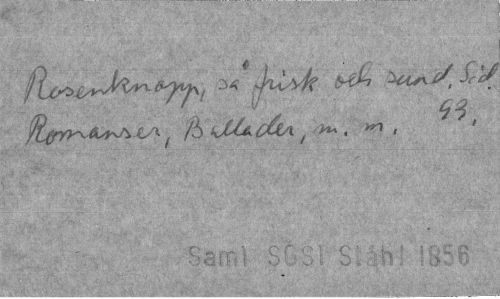 Rosenknopp, så frisk och sund. Sid.
Romanser, Ballader, m. m. 93.
Saml SGSl Ståhl 1856